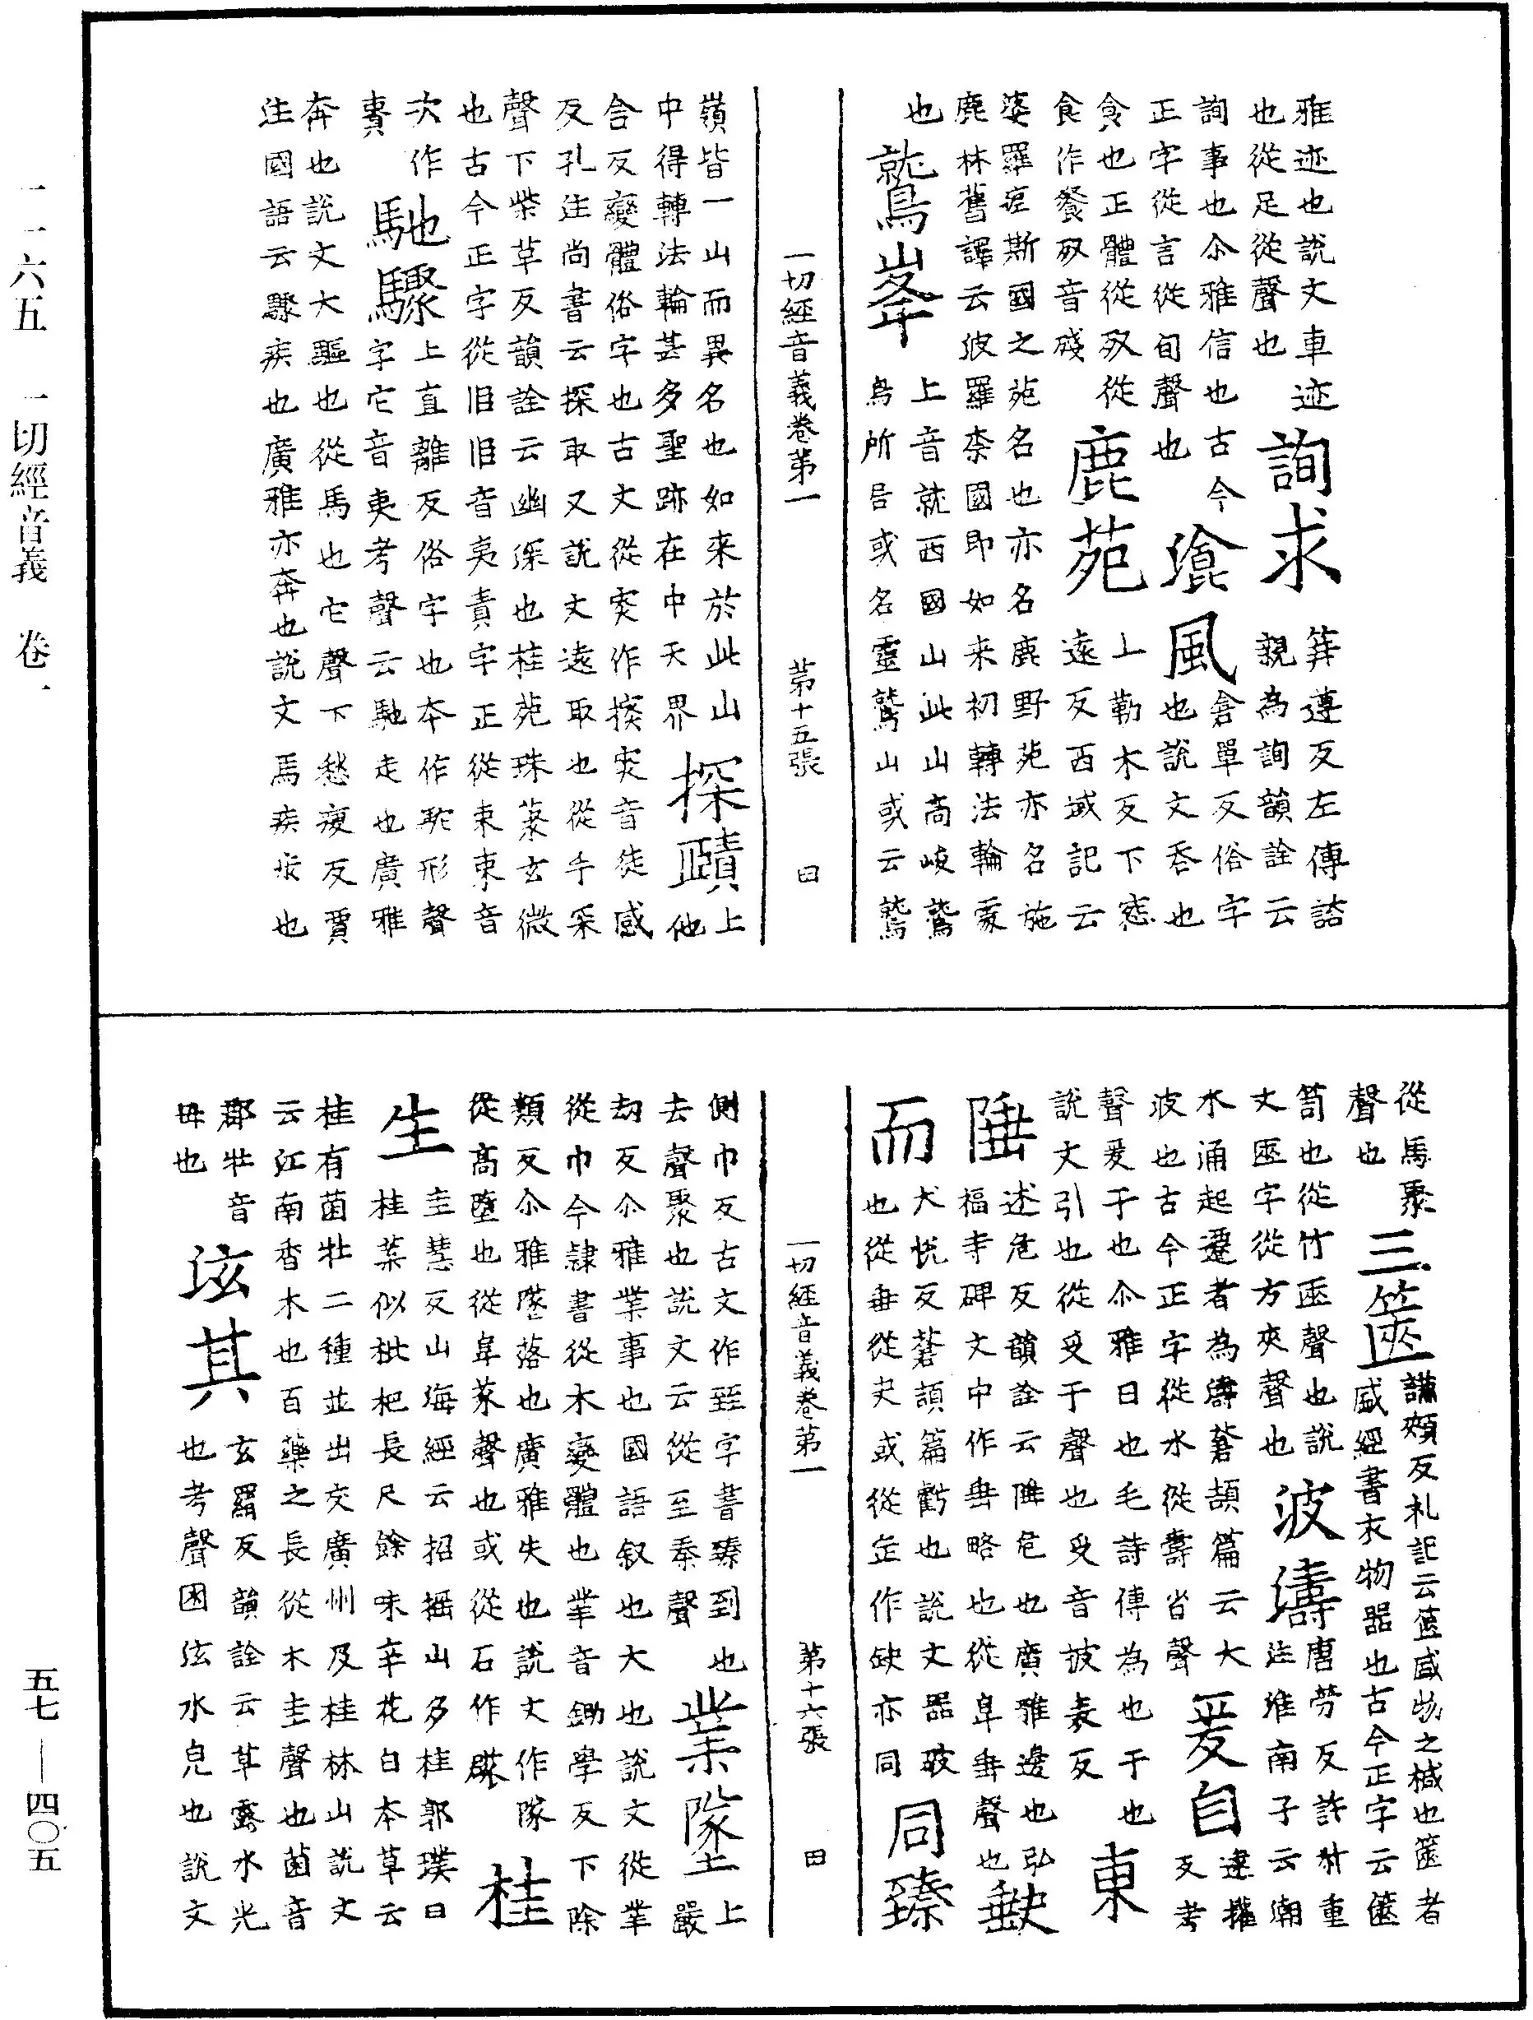 一一六五　一切經音義　卷一
雅迹也說文車迹
也從足從聲也
詢求
筭遵反左傳諮
親為詢韻詮云
詢事也尒雅信也古今
正字從言從旬聲也
飡風
倉單反俗字
也說文吞也
食也正體從歺從
食作餐歺音殘
鹿苑
上勒木反下寃
遠反西域記云
婆羅痆斯國之苑名也亦名鹿野苑亦名施
鹿林舊譯云波羅柰國即如来初轉法輪處
也
鷲峯
上音就西國山此山高峻鷲
鳥所居或名靈鷲山或云鷲
一切經音義卷第一　第十五張　田
嶺皆一山而異名也如来於此山
中得轉法輪甚多聖跡在中天界
探賾
上
他
含反變體俗字也古文從穾作撢穾音徒感
反孔注尚書云探取又說文遠取也從手罙
聲下柴革反韻詮云幽深也桂苑珠藂玄微
也古今正字從𦣞𦣞音夷責字正從朿朿音
次作
賷
馳驟
上直離反俗字也本作駞形聲
字它音夷考聲云馳走也廣雅
奔也說文大驅也從馬也它聲下愁瘦反賈
注國語云驟疾也廣雅亦奔也說文馬疾步也
從馬聚
聲也
三篋
謙頰反礼記云篋盛物之椷也篋者
盛經書衣物器也古今正字云篋
笥也從竹匧聲也說
文匧字從方夾聲也
波濤
唐勞反許叔重
注淮南子云潮
水涌起遷者為濤蒼頡篇云大
波也古今正字從水從壽省聲
爰自
遠權
反考
聲爰于也尒雅曰也毛詩傳為也于也
說文引也從𠬪于聲也𠬪音披表反
東
陲
述危反韻詮云陲危也廣雅邊也弘
福寺碑文中作垂略也從阜垂聲也
缺
而
犬恱反蒼頡篇虧也說文器破
也從垂從史或從缶作缺亦同
同臻
一切經音義卷第一　第十六張　田
側巾反古文作臸字書臻到也
去聲聚也說文云從至秦聲
業墜
上
嚴
刼反尒雅業事也國語叙也大也說文從丵
從巾今隸書從木變體也丵音鋤學反下除
類反尒雅墜落也廣雅失也說文作隊
從高墮也從阜㒸聲也或從石作䃍
桂
生
圭慧反山海經云招摇山多桂郭璞曰
桂葉似枇杷長尺餘味辛花白本草云
桂有菌牡二種並出交廣州及桂林山說文
云江南香木也百藥之長從木圭聲也菌音
郡牡音
母也
泫其
玄羂反韻詮云草露水光
也考聲困泫水皃也說文
五七—四〇五